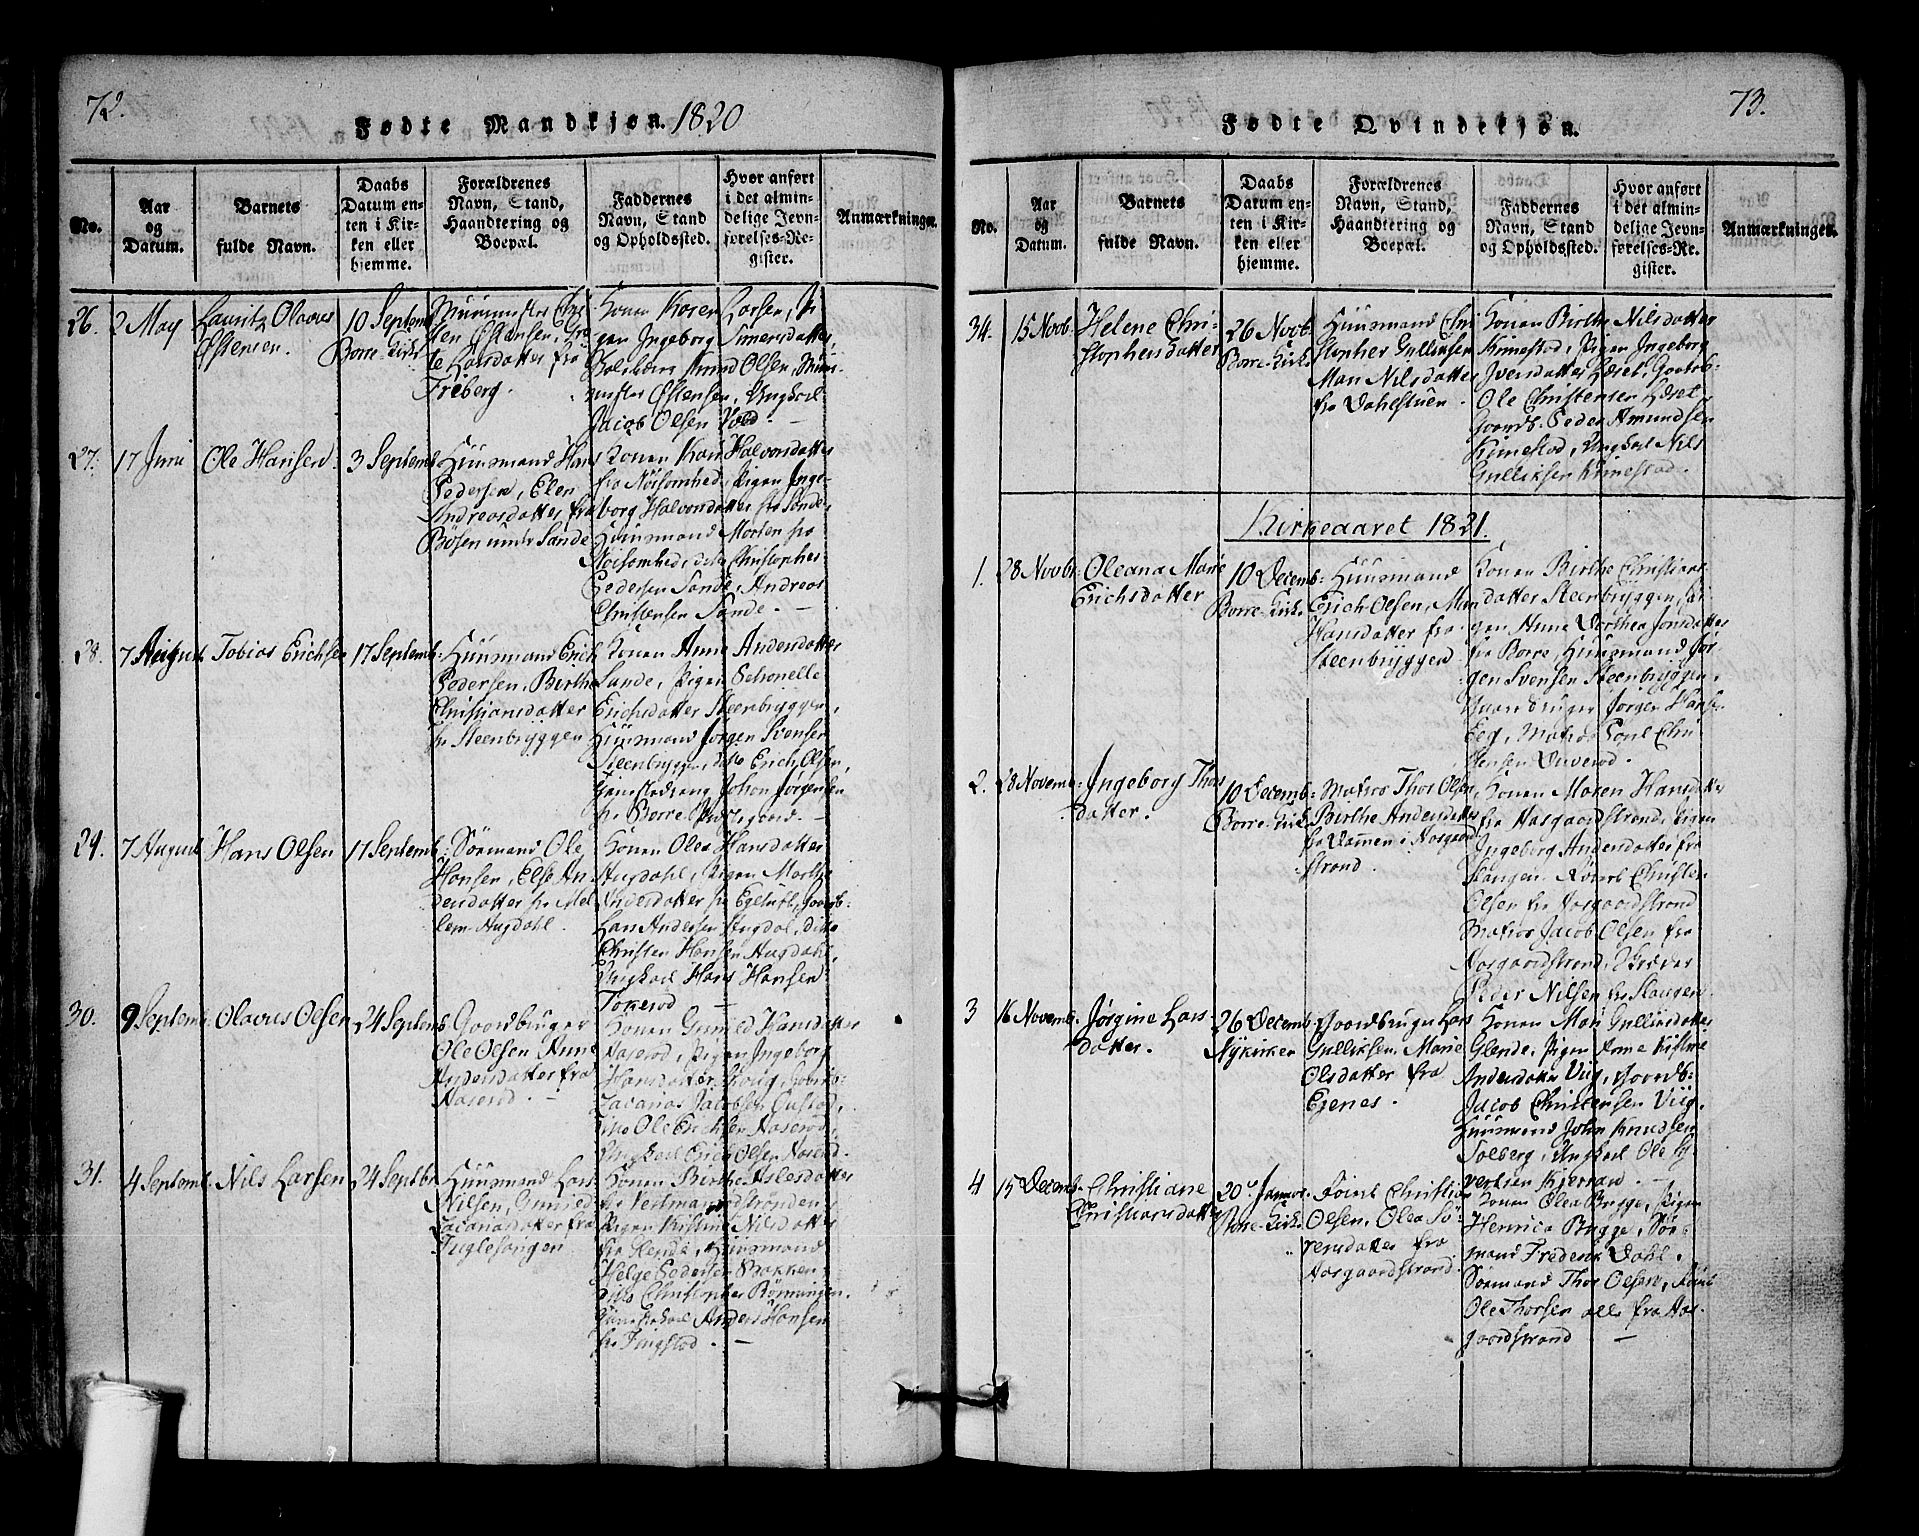 72.
Fødte Mandkjøn. 1820
No.
Aar
og
Datum.
Barnets
fulde Navn.
Daabs
Datum en-
ten i Kir-
ken eller
hjemme.
Forældrenes
Navn, Stand,
Haandtering og
Boepæl.
Faddernes
Navn, Stand
og Opholdssted.
Hvor anført
i det almin-
delige Jevn-
førelses-Re-
gister.
Anmærkninger.
26.
2 May
Lauritz Olavus
Estensen.
10 Septemb
Borre-Kirke
ten Estensen,
te Larsdatter fra
Freberg.
Konen Karen Larsen, Pi
gen Ingeborg Simersdatter,
Knud Olsen, Muur-
mester Estensen, Ungkarl
Jacob Olsen Vold. -
27.
17 Juni
Ole Hansen
3 Septemb.
Huusmand Hans
Pedersen, Elen
Andreasdatter fra
Bøsen under Sande
Konen Kari Halvorsdatter
fra Nøisomhed, Pigen Inge-
borg Halvorsdatter fra Sande,
Huusmand Morten fra
Nøisomhed, ditto Christopher
Pedersen Sande, Andreas
Christensen Sande. -
28.
7 August
Tobias Erichsen
17 Septemb.
Huusmand Erich
Pedersen, Birthe
Christiansdatter
fr Steenbryggen
Konen Anne Andersdatter
Sande, Pigen Schonelle
Erichsdatter Steenbryggen,
Huusmand Jørgen Svensen
Steenbrygge, ditto Erich Olsen,
Tjenestedreng Johan Jørgensen
fr Borre Præstegaard. -
29.
7 August
Hans Olsen
17 Septemb.
Sømand Ole
Hansen, Else An-
dersdatter fr Mel-
lem-Augdahl.
Konen Olea Hansdatter
Augdahl, Pigen Marthe
Andersdatter fr Egeluft, Gaardb-
Lars Andersen Augdal, ditto
Christen Hansen Augdahl,
Ungkarl Hans Hansen
Tokerød -
30.
9 Septemb.
Olavus Olsen
24 Septemb.
Gaardbruger
Ole Olsen Anne
Andersdatter fra
Aaserød. -
Konen Gunild Hansdatter
Aaserød, Pigen Ingeborg
Hansdatter Skoug, Gaardb-
Zacarias Jacobsen Gustad,
Ole Erichsen Aaserød,
Ungkarl Erich Olsen Aaserød
31.
4 Septemb.
Nils Larsen
24 Septbr
Huusmand Lars
Nilsen, Gunild
Zacariasdatter fra
Fuglesangen
Konen Birthe Aslesdatter
fra Vestmandstrønden
Pigen Kistine Nilsdatter
fra Glende, Huusmand
Helge Pedersen Bakken,
ditto Christopher Rønningen.
Anders Hansen
fr Fingstad. -
73.
Fødte Qvindekjøn.
No.
Aar
og
Datum.
Barnets
fulde Navn.
Daabs
Datum en-
ten i Kir-
ken eller
hjemme.
Forældrenes
Navn, Stand,
Haandtering og
Boepæl.
Faddernes
Navn, Stand
og Opholdssted.
Hvor anført
i det almin-
delige Jevn-
førelses-Re-
gister.
Anmærkninger.
34.
15 Novb.
Helene Chri-
stophersdatter
26 Novb.
Borre-Kirke
Huusmand Chri
stopher Gulliksen
Mari Nilsdatter
fra Dahlstuen.
Konen Birthe Nilsdatter
Kimestad, Pigen Ingeborg
Iversdatter Læset, Gaardb-
Ole Christensen Læset,
Gaardb. Peder Amundsen
Kimestad, Ungkarl Nils
Gulliksen Kimestad.
Kirkeaaret 1821.
1.
28 Novbr.
Oleana Marie
Erichsdatter
10 Decemb:
Borre-Kirke
Huusmand
Erich Olsen, Mari
Hansdatter fra
Steenbryggen
Konen Birthe Christians
datter Steenbryggen, Pi
gen Anne Dorthea Jonsdatter
fra Borre, Huusmand Jør
gen Svensen Steenbryggen,
Gaardbruger Jørgen Hansen
Eeg, Matros Poul Chri
stensen Duverød.
2.
28 Novemb.
Ingeborg Thors
datter.
10 Decemb:
Borre-Kirke
Matros Thor Olsen
Birthe Andersdatter
fra Dammen i Aasgaard
strand.
Konen Maren Hansdatter
fra Aasgaardstrand, Pigen
Ingeborg Andersdatter fra
Slangen, Christen
Olsen fra Aasgaardstrand
Matros Jacob Olsen fra
Aasgaardstrand,
Peder Nilsen fra Slangen.
3
16 Novemb.
Jørgine Lars
datter.
26 Decemb.
Nykirken
Gaardbruger Lars
Gulliksen, Marie
Olsdatter fra
Egenes.
Konen Mari Gulliksdatter
Glende, Pigen Anne Kistine
Andersdatter Viig, Gaardb:
Jacob Christensen Viig,
Huusmand John Knudsen
Solberg, Ungkarl Ole Sy-
vertsen Kjerraa. -
4
15 Decemb.
Christiane
Christiansdatter
20 Januar.
Borre-Kirke
Christian
Olsen, Olea Sø-
rensdatter fra
Aasgaardstrand
Konen Olea Bugge, Pigen
Henrica Bugge, Sø-
mand Frederik Dahl,
Sømand Thor Olsen,
Ole Thorsen alle fra Aas-
gaardstrand -